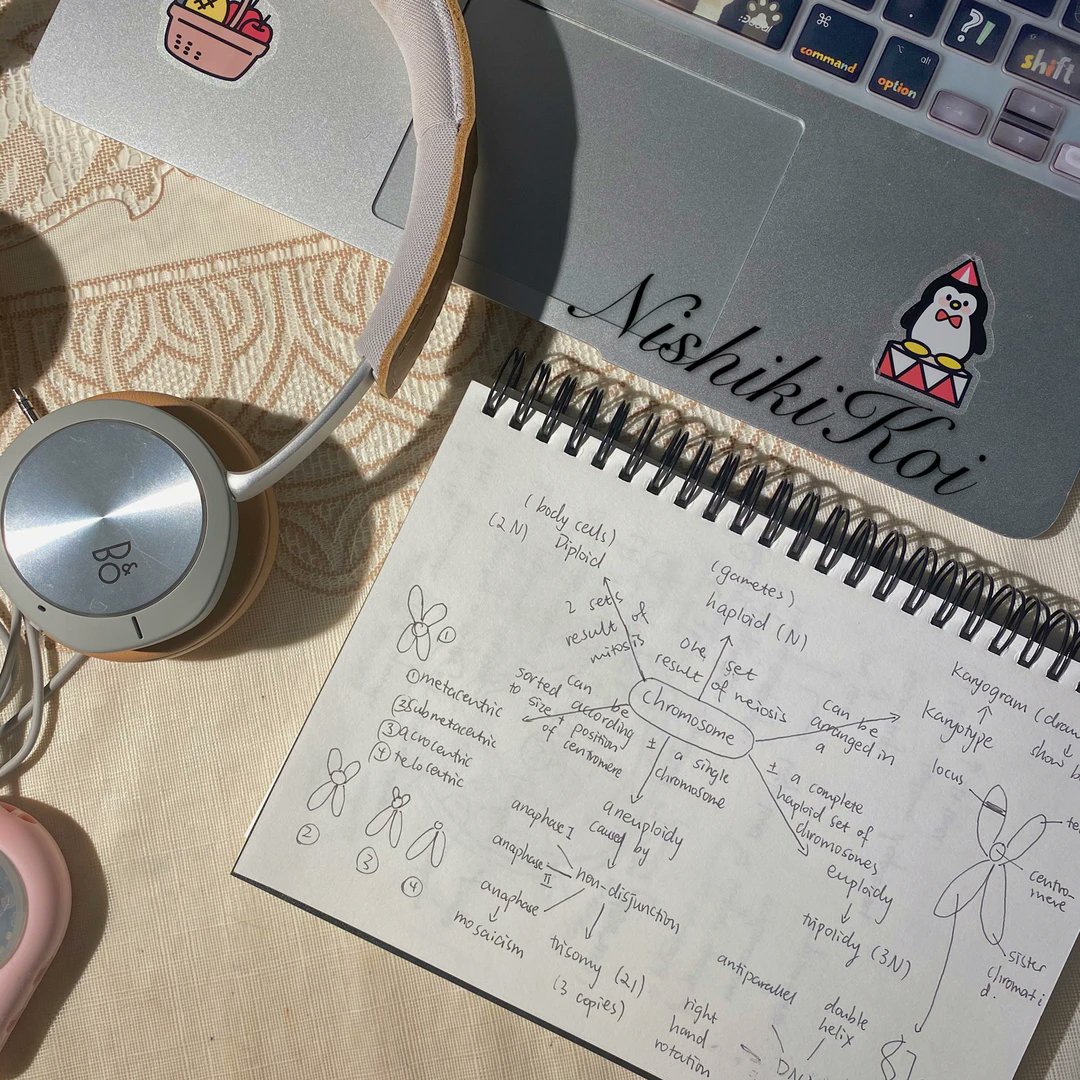 command
alt
option
?
shift
NishikiKoi
B&O
(body cells)
(2N) Diploid
2 sets of
result of
mitosis
(gametes)
haploid (N)
one set
result of meiosis
chromosome
can be
sorted according
to size + position
of centromere
①
① metacentric
② submetacentric
③ acrocentric
④ telocentric
②
③
④
± a single
chromosome
aneuploidy
caused by
non-disjunction
anaphase I
anaphase II
anaphase
mosaicism
trisomy (21)
(3 copies)
can be
arranged in
a
Karyotype
Karyogram (draw
show b
± a complete
haploid set of
chromosomes
euploidy
tripolidy (3N)
locus
te
centro-
mere
sister
chromati
d.
antiparallel
double
helix
right
hand
rotation
DN